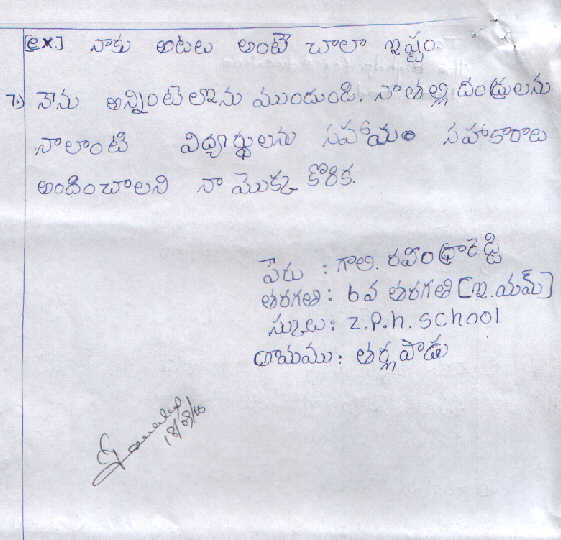 [ex] నాకు ఆటలు అంటే చాలా ఇష్టం.
7) నేను అన్నింటిలోను ముందుండి. నా తల్లి దండ్రులను
నాలాంటి విద్యార్థులను సహాయం సహాకారాలు
అందించాలని నా మొక్క కోరిక.
పేరు : గాలి. రవీంద్రారెడ్డి
తరగతి : 6వ తరగతి [ఇ.యమ్]
స్కులు : Z.P.h. School
గ్రామము : తర్లుపాడు